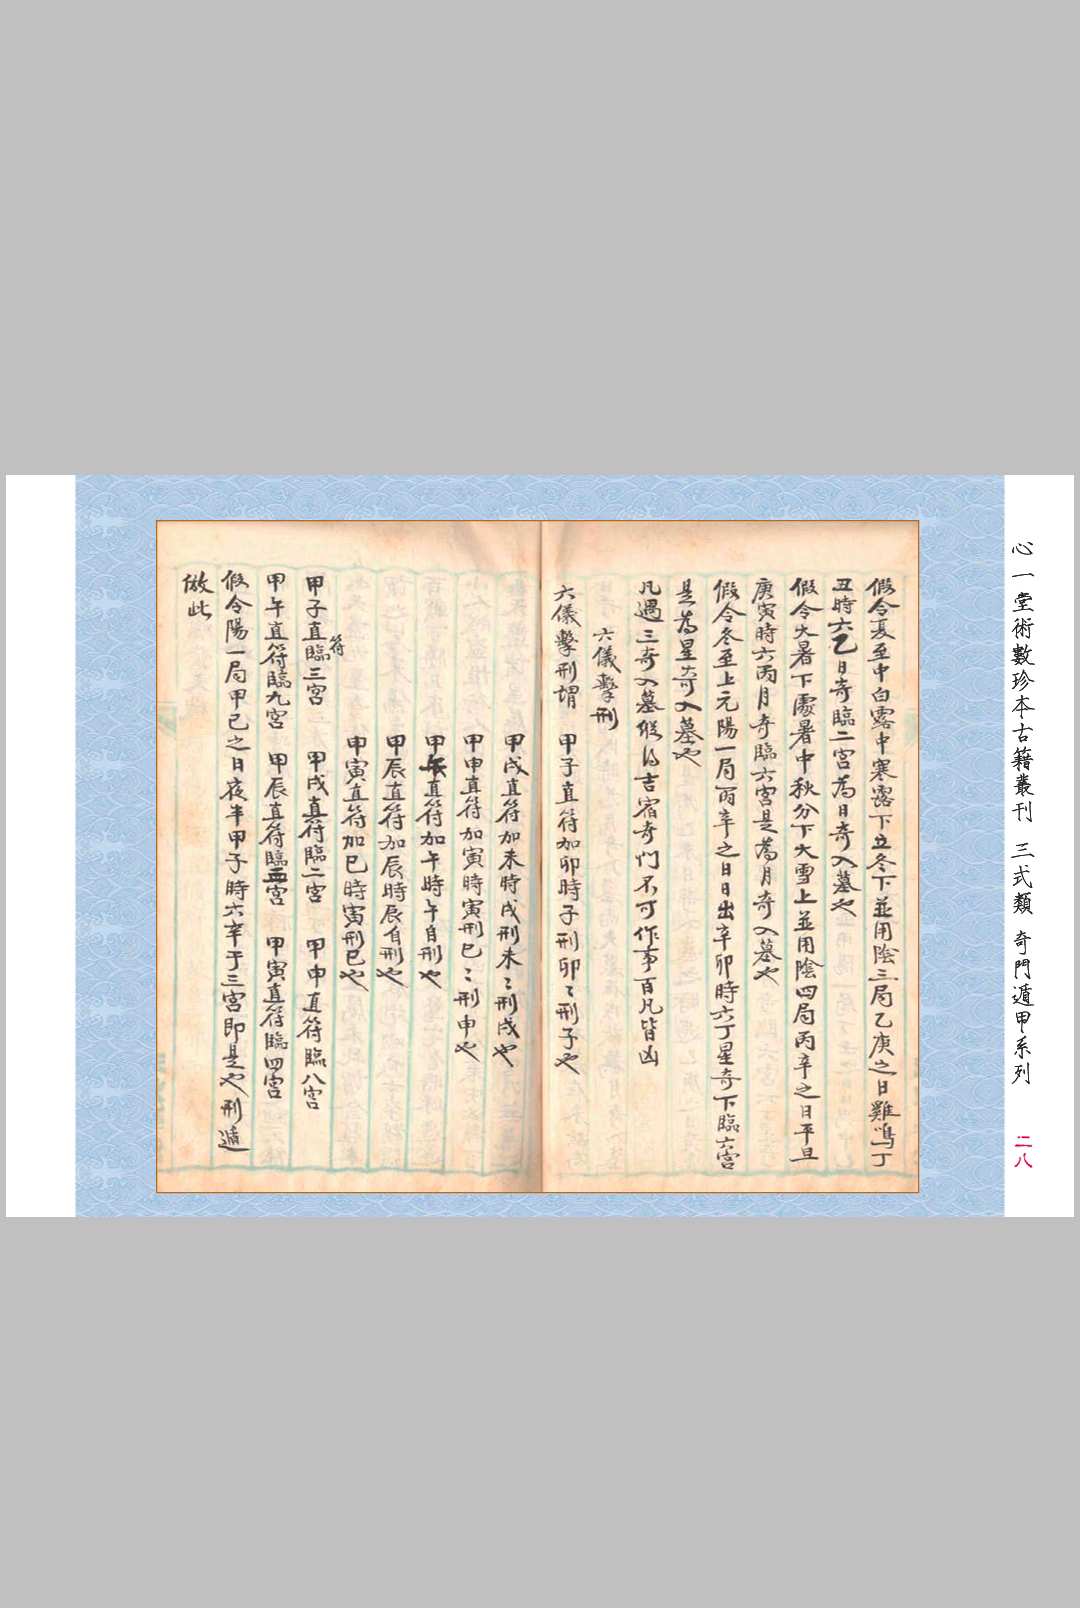 心一堂術數珍本古籍叢刊 三式類 奇門遁甲系列
二八
假令夏至中白露中寒露下立冬下並用陰三局乙庚之日雞鳴丁
丑時六乙日奇臨二宮為日奇入墓也
假令大暑下處暑中秋分下大雪上並用陰四局丙辛之日平旦
庚寅時六丙月奇臨六宮是為月奇入墓也
假令冬至上元陽一局丙辛之日日出辛卯時六丁星奇下臨六宮
是為星奇入墓也
凡遇三奇入墓縱得吉宿奇門不可作事百凡皆凶
六儀擊刑
六儀擊刑謂 甲子直符加卯時子刑卯〻刑子也
甲戌直符加未時戌刑未〻刑戌也
甲申直符加寅時寅刑巳〻刑申也
甲午直符加午時午自刑也
甲辰直符加辰時辰自刑也
甲寅直符加巳時寅刑巳也
甲子直符臨三宮 甲戌直符臨二宮 甲申直符臨八宮
甲午直符臨九宮 甲辰直符臨四宮 甲寅直符臨四宮
假令陽一局甲己之日夜半甲子時六辛于三宮即是也刑遁
倣此